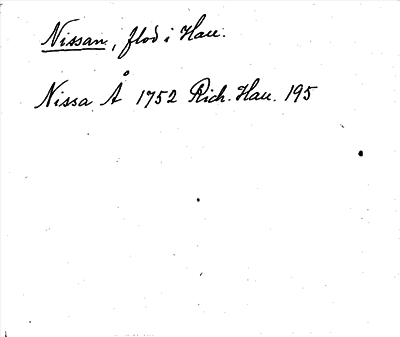 Nissan, flod i Hall.
Nissa Å 1752 Rich. Hall. 195